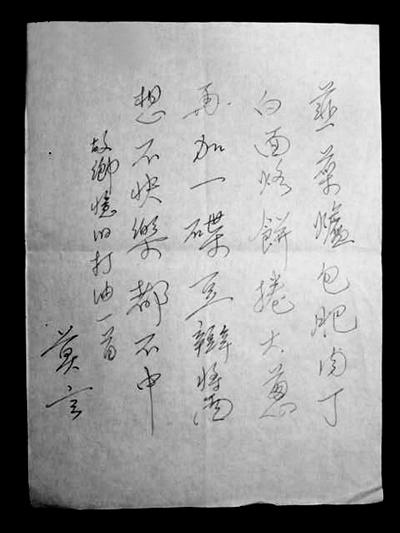 韮菜爐包肥肉丁
白面烙餅捲大蔥
再加一碟豆瓣醬
想不快樂都不中
故鄉憶旧打油一首
莫言